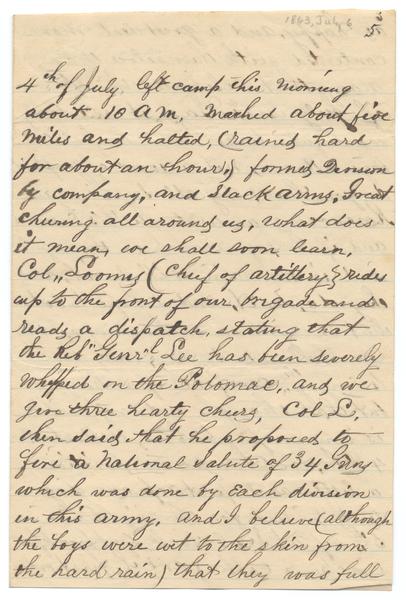 1863, July 6
5
4th of July, left camp this morning
about 10 AM, Marched about five
miles and halted, (rained hard
for about an hour,) formed Division
by company, and Stack arms, Great
churing all around us, what does
it mean, we shall soon learn,
Col,, Loomis (Chief of artillery) rides
up to the front of our brigade and
reads a dispatch, stating that
the Reb" Genr'l Lee has been severely
whipped on the Potomac, and we
give three hearty cheers, Col L.
then said that he proposed to
fire a National Salute of 34 Guns
which was done by Each division
in this army, and I believe (although
the boys were wet to the skin from
the hard rain) that they was full